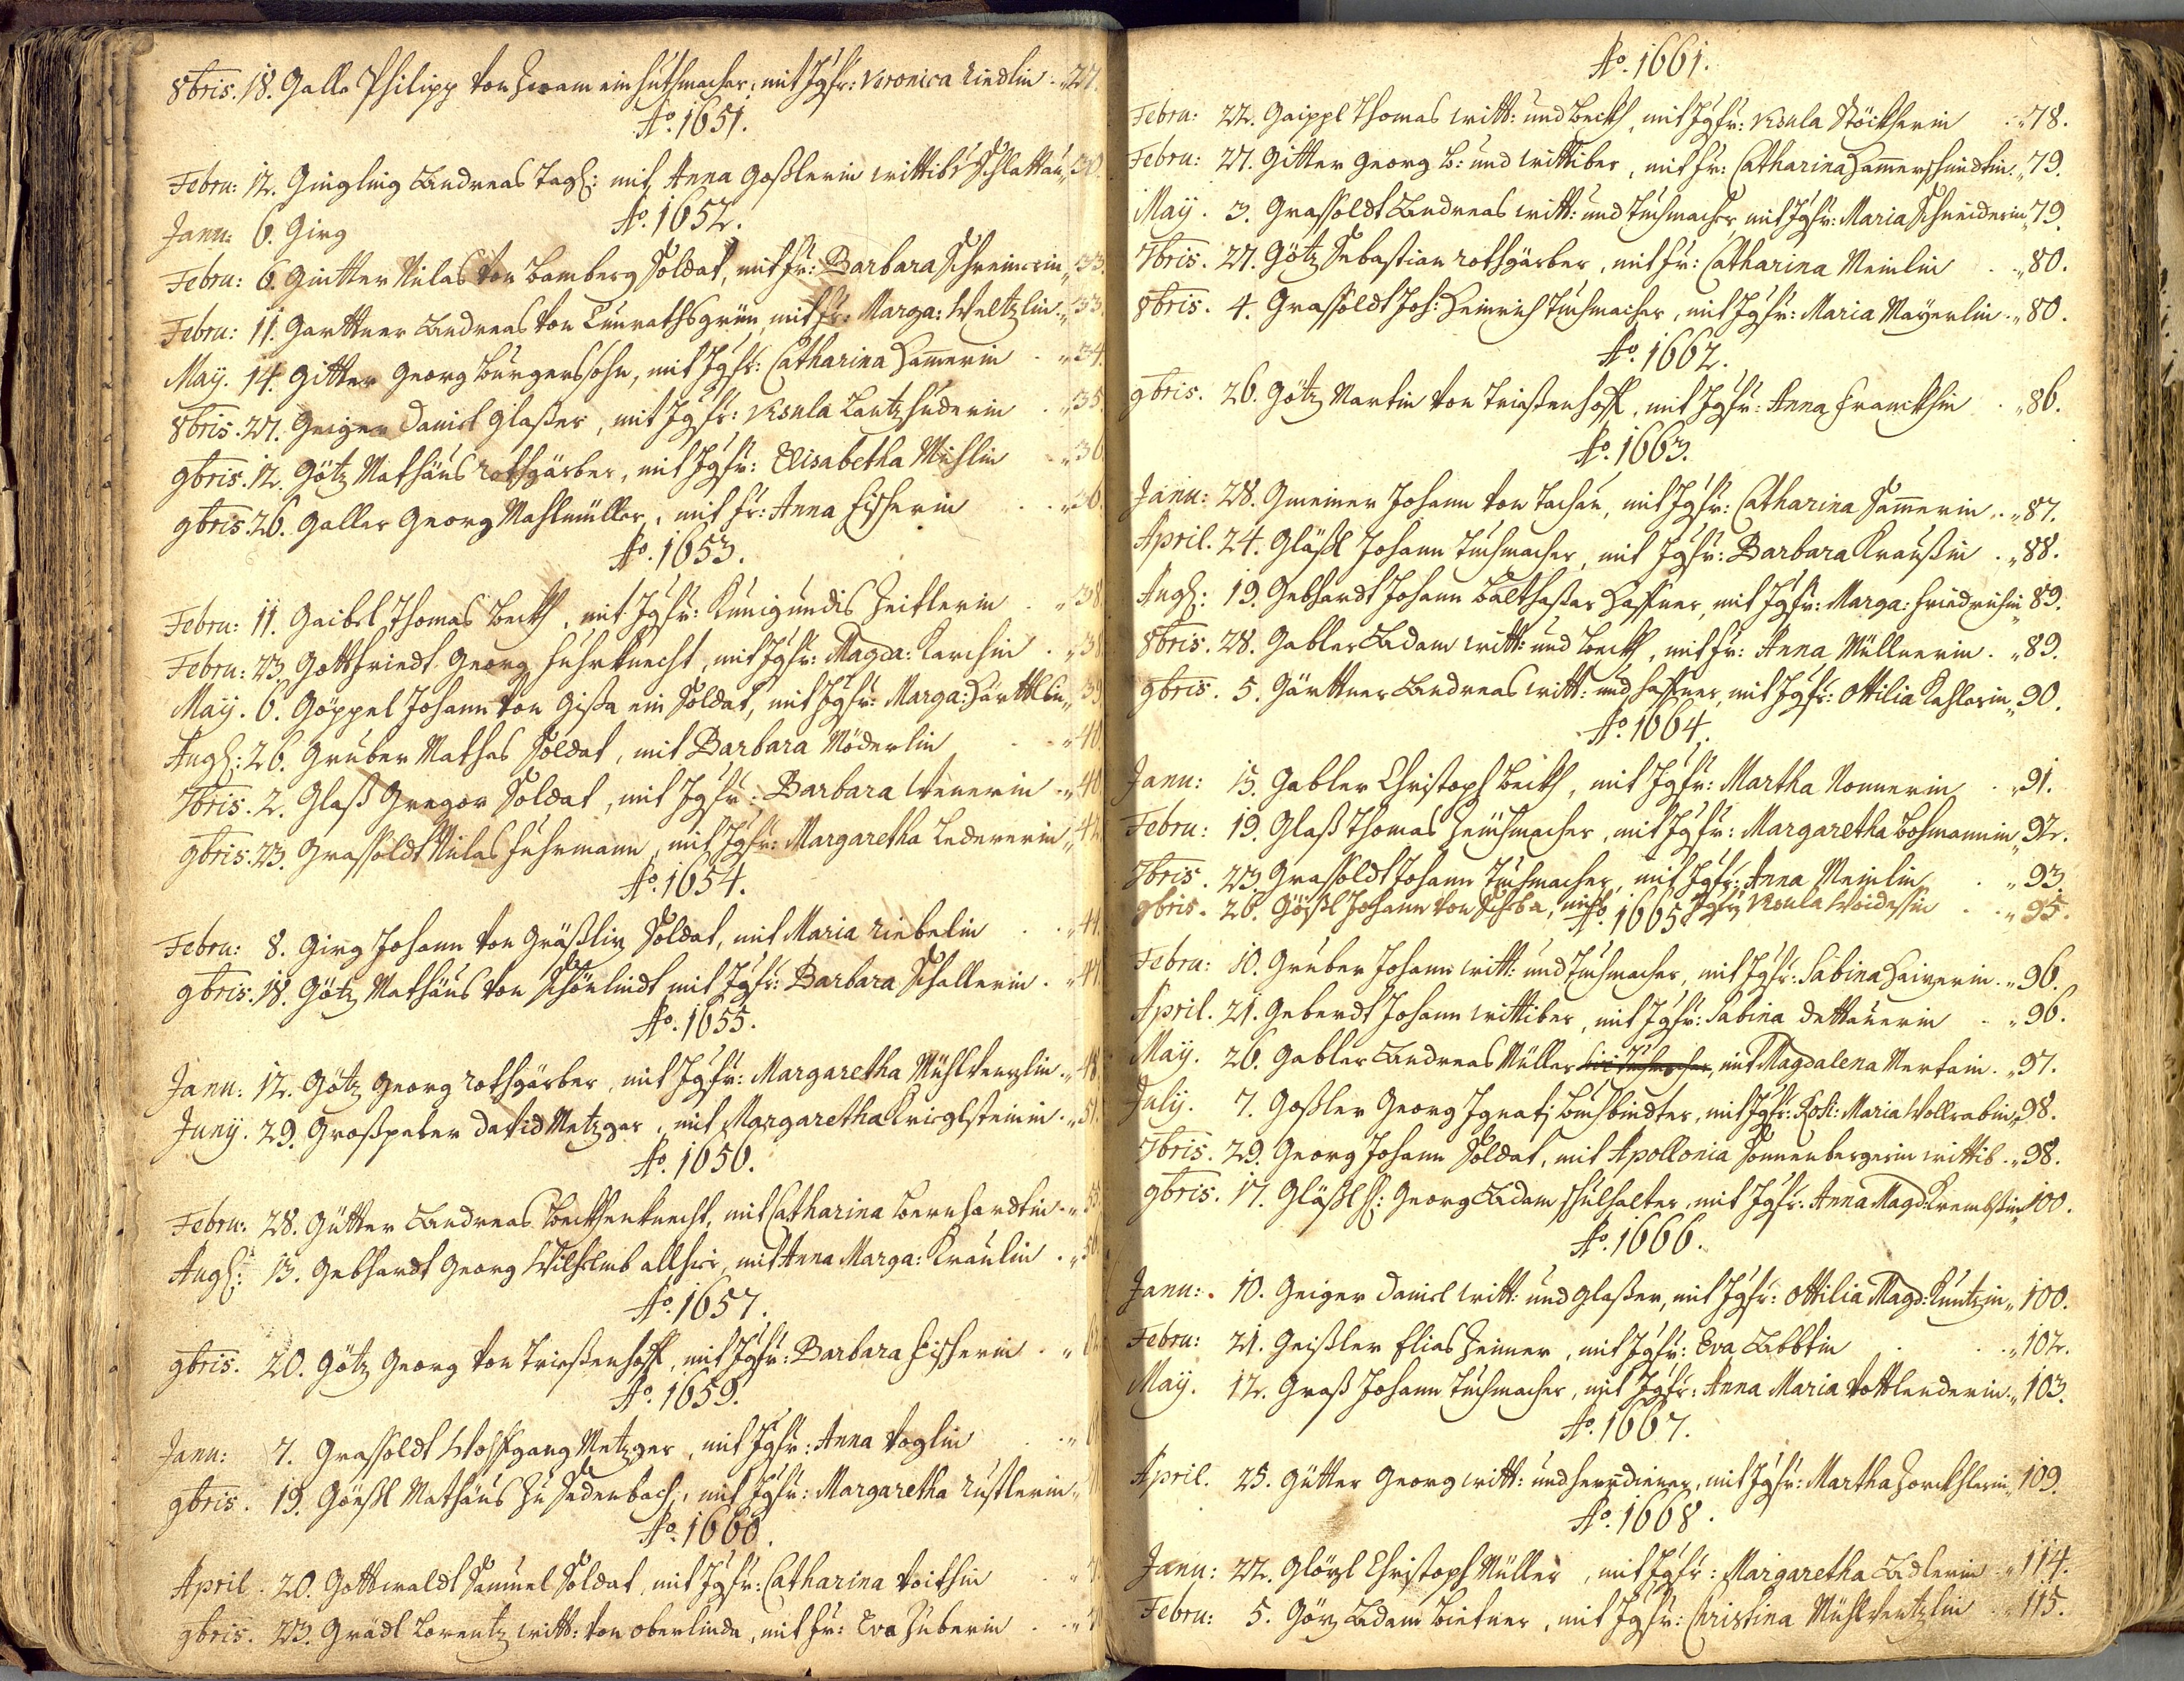 8bris. 18. Galla Philipp von ein huthmacher, mit Jgfr: Veronica Riedlin „27.
Ao. 1651.
Febru: 12. Gingling Andreas Tagl: mit Anna Goßlerin wittib Schlattau „30.
Ao. 1652.
Janu: 6. Girg
Febru: 6. Gütter Niclas von Bamberg Soldat, mit fr: Barbara Schreinerin „33.
Febru: 11. Garttner Andreas von Cunrathsgrün, mit fr: Marga: Weltzlin „33.
May. 14. Gitter Georg burgerssohn, mit Jgfr: Catharina Hamerin „34.
8bris. 27. Geiger Daniel glaßer, mit Jgfr: Ursula Lantzhuderin „35.
9bris. 12. Götz Mathäus rothgärber, mit Jgfr: Elisabetha Mihlin „36.
9bris. 26. Galler Georg Mahlmüller, mit fr: Anna Fischerin „36.
Ao. 1653.
Febru: 11. Gaibel Thomas beckh, mit Jgfr: Kunigundis Zeitlerin „38.
Febru: 23. Gottfriedt Georg fuhrknecht, mit Jgfr: Magda: Karchin „38
May. 6. Göppel Johann von Gißa ein Soldat, mit Jgfr: Marga: Härttlin „39
Aug: 26. Gruber Mathes Soldat, mit Barbara Möderlin „40
7bris. 2. Glaß Gregor Soldat, mit Jgfr: Barbara Wenerin „40
9bris. 23. Grassoldt Niclas fuhrmann, mit Jgfr: Margaretha Ledererin „42
Ao. 1654.
Febru: 8. Girg Johann von Gräßliz Soldat, mit Maria Riebelin „44.
9bris. 18. Götz Mathäus von Schönlindt mit Jgfr: Barbara Schallerin „47.
Ao. 1655.
Janu: 12. Götz Georg rothgärber, mit Jgfr: Margaretha Mühlwenzlin „48.
Juny. 29. Großpeter David Metzger, mit Margaretha Krieglsteinin „51.
Ao. 1656.
Febru: 28. Gütter Andreas beckhenknecht, mit Catharina Bernhardtin „55
Aug: 13. Gebhardt Georg Wilhelmb allhier, mit Anna Marga: Kräulin „56
Ao. 1657.
9bris. 20. Götz Georg von Trießenhoff, mit Jgfr: Barbara Fischerin
Ao. 1659.
Janu: 7. Grassoldt Wolffgang Metzger, mit Jgfr: Anna Voglin
9bris. 19. Gönßl Mathäus zu Sedenbach, mit Jgfr: Margaretha Rustlerin
Ao. 1660.
April. 20. Gottwaldt Samuel Soldat, mit Jgfr: Catharina Voithin
9bris. 23. Grädl Lorentz witt: von Oberlinda, mit fr: Eva Huberin
Ao. 1661.
Febru: 22. Gaippl Thomas witt: und beckh, mit Jgfr: Ursula Stöckherin „78.
Febru: 27. Gitter Georg B: und wittiber, mit fr: Catharina Hamerschmidtin „79.
May. 3. Grassoldt Andreas witt: und Tuchmacher mit Jgfr: Maria Schneiderin „79.
7bris. 27. Götz Sebastian rothgärber, mit fr: Catharina Meinlin „80.
8bris. 4. Grassoldt Joh: Heinrich Tuchmacher, mit Jgfr: Maria Mayerlin „80.
Ao. 1662.
9bris. 26. Götz Martin von Trießenhoff, mit Jgfr: Anna Franckhin „86.
Ao. 1663.
Janu: 28. Gmeiner Johann von Tachau, mit Jgfr: Catharina Samerin „87.
April. 24. Gläßl Johann Tuchmacher, mit Jgfr: Barbara Kraußin „88.
Aug: 19. Gebhardt Johann Balthaßar Haffner, mit Jgfr: Marga: Friedrichin „89.
8bris. 28. Gabler Adam witt: und beckh, mit fr: Anna Müllnerin „89.
9bris. 5. Gärttner Andreas witt: und haffner, mit Jgfr: Ottilia Kahlerin „90.
Ao. 1664.
Janu: 15. Gabler Christoph beckh, mit Jgfr: Martha Nonnerin „91.
Febru: 19. Glaß Thomas Zeuchmacher, mit Jgfr: Margaretha Bohmannin „92.
7bris. 23. Grassoldt Johann Tuchmacher, mit Jgfr: Anna Meinlin „93.
9bris. 26. Gößl Johann von Scheba, mit Jgfr: Ursula Woidessin „95.
Ao. 1665.
Febru: 10. Gruber Johann witt: und Tuchmacher, mit Jgfr: Sabina Haiperin „96.
April. 21. Geberdt Johann wittiber, mit Jgfr: Sabina Dettauerin „96.
May. 26. Gabler Andreas Müller, mit Magdalena Mertain „97.
July. 7. Goßler Georg Ignatj buchbindter, mit Jgfr: Rosi: Maria Wollrabin „98.
7bris. 29. Georg Johann Soldat, mit Apollonia Sonnenbergerin wittib „98.
9bris. 17. Gläßl H: Georg Adam schulhalter, mit Jgfr: Anna Magd: Krembßin „100.
Ao. 1666.
Janu: 10. Geiger Daniel witt: und glaßer, mit Jgfr: Ottilia Magd: Kuntzin „100.
Febru: 21. Geißler Elias Zeiner, mit Jgfr: Eva Abbtin „102.
May. 12. Graß Johann Tuchmacher, mit Jgfr: Anna Maria Vottlenderin „103.
Ao. 1667.
April. 25. Gütter Georg witt: und herrndiener, mit Jgfr: Martha Zorckhlerin „109.
Ao. 1668.
Janu: 22. Glözl Christoph Müller, mit Jgfr: Margaretha Adlerin „114.
Febru: 5. Göz Adam bietner, mit Jgfr: Christina Mühlwentzlin „115.